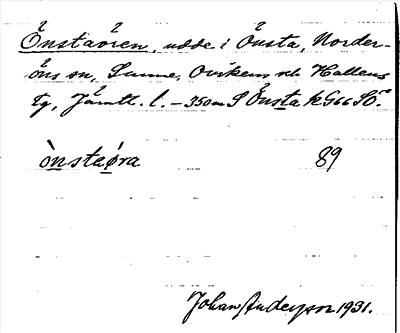 Önstaören, udde i Önsta, Norder-
öns sn, Sunne, Ovikens och Hallens
tg, Jämtl. l. – 350 m S Önsta kG66 SO.
ònstaǿra 89
Johan Anderson 1931.